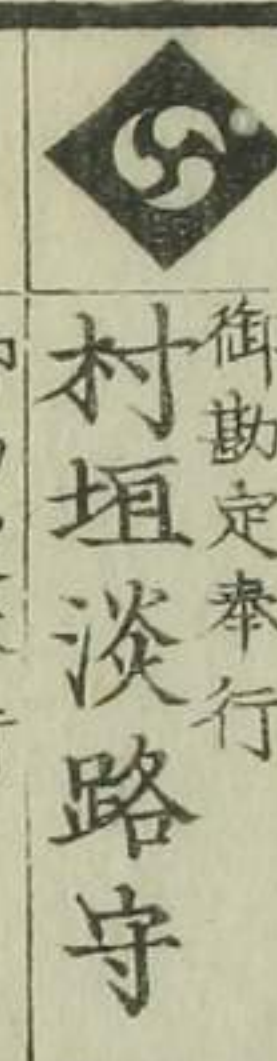 御勘定奉行
村垣淡路守